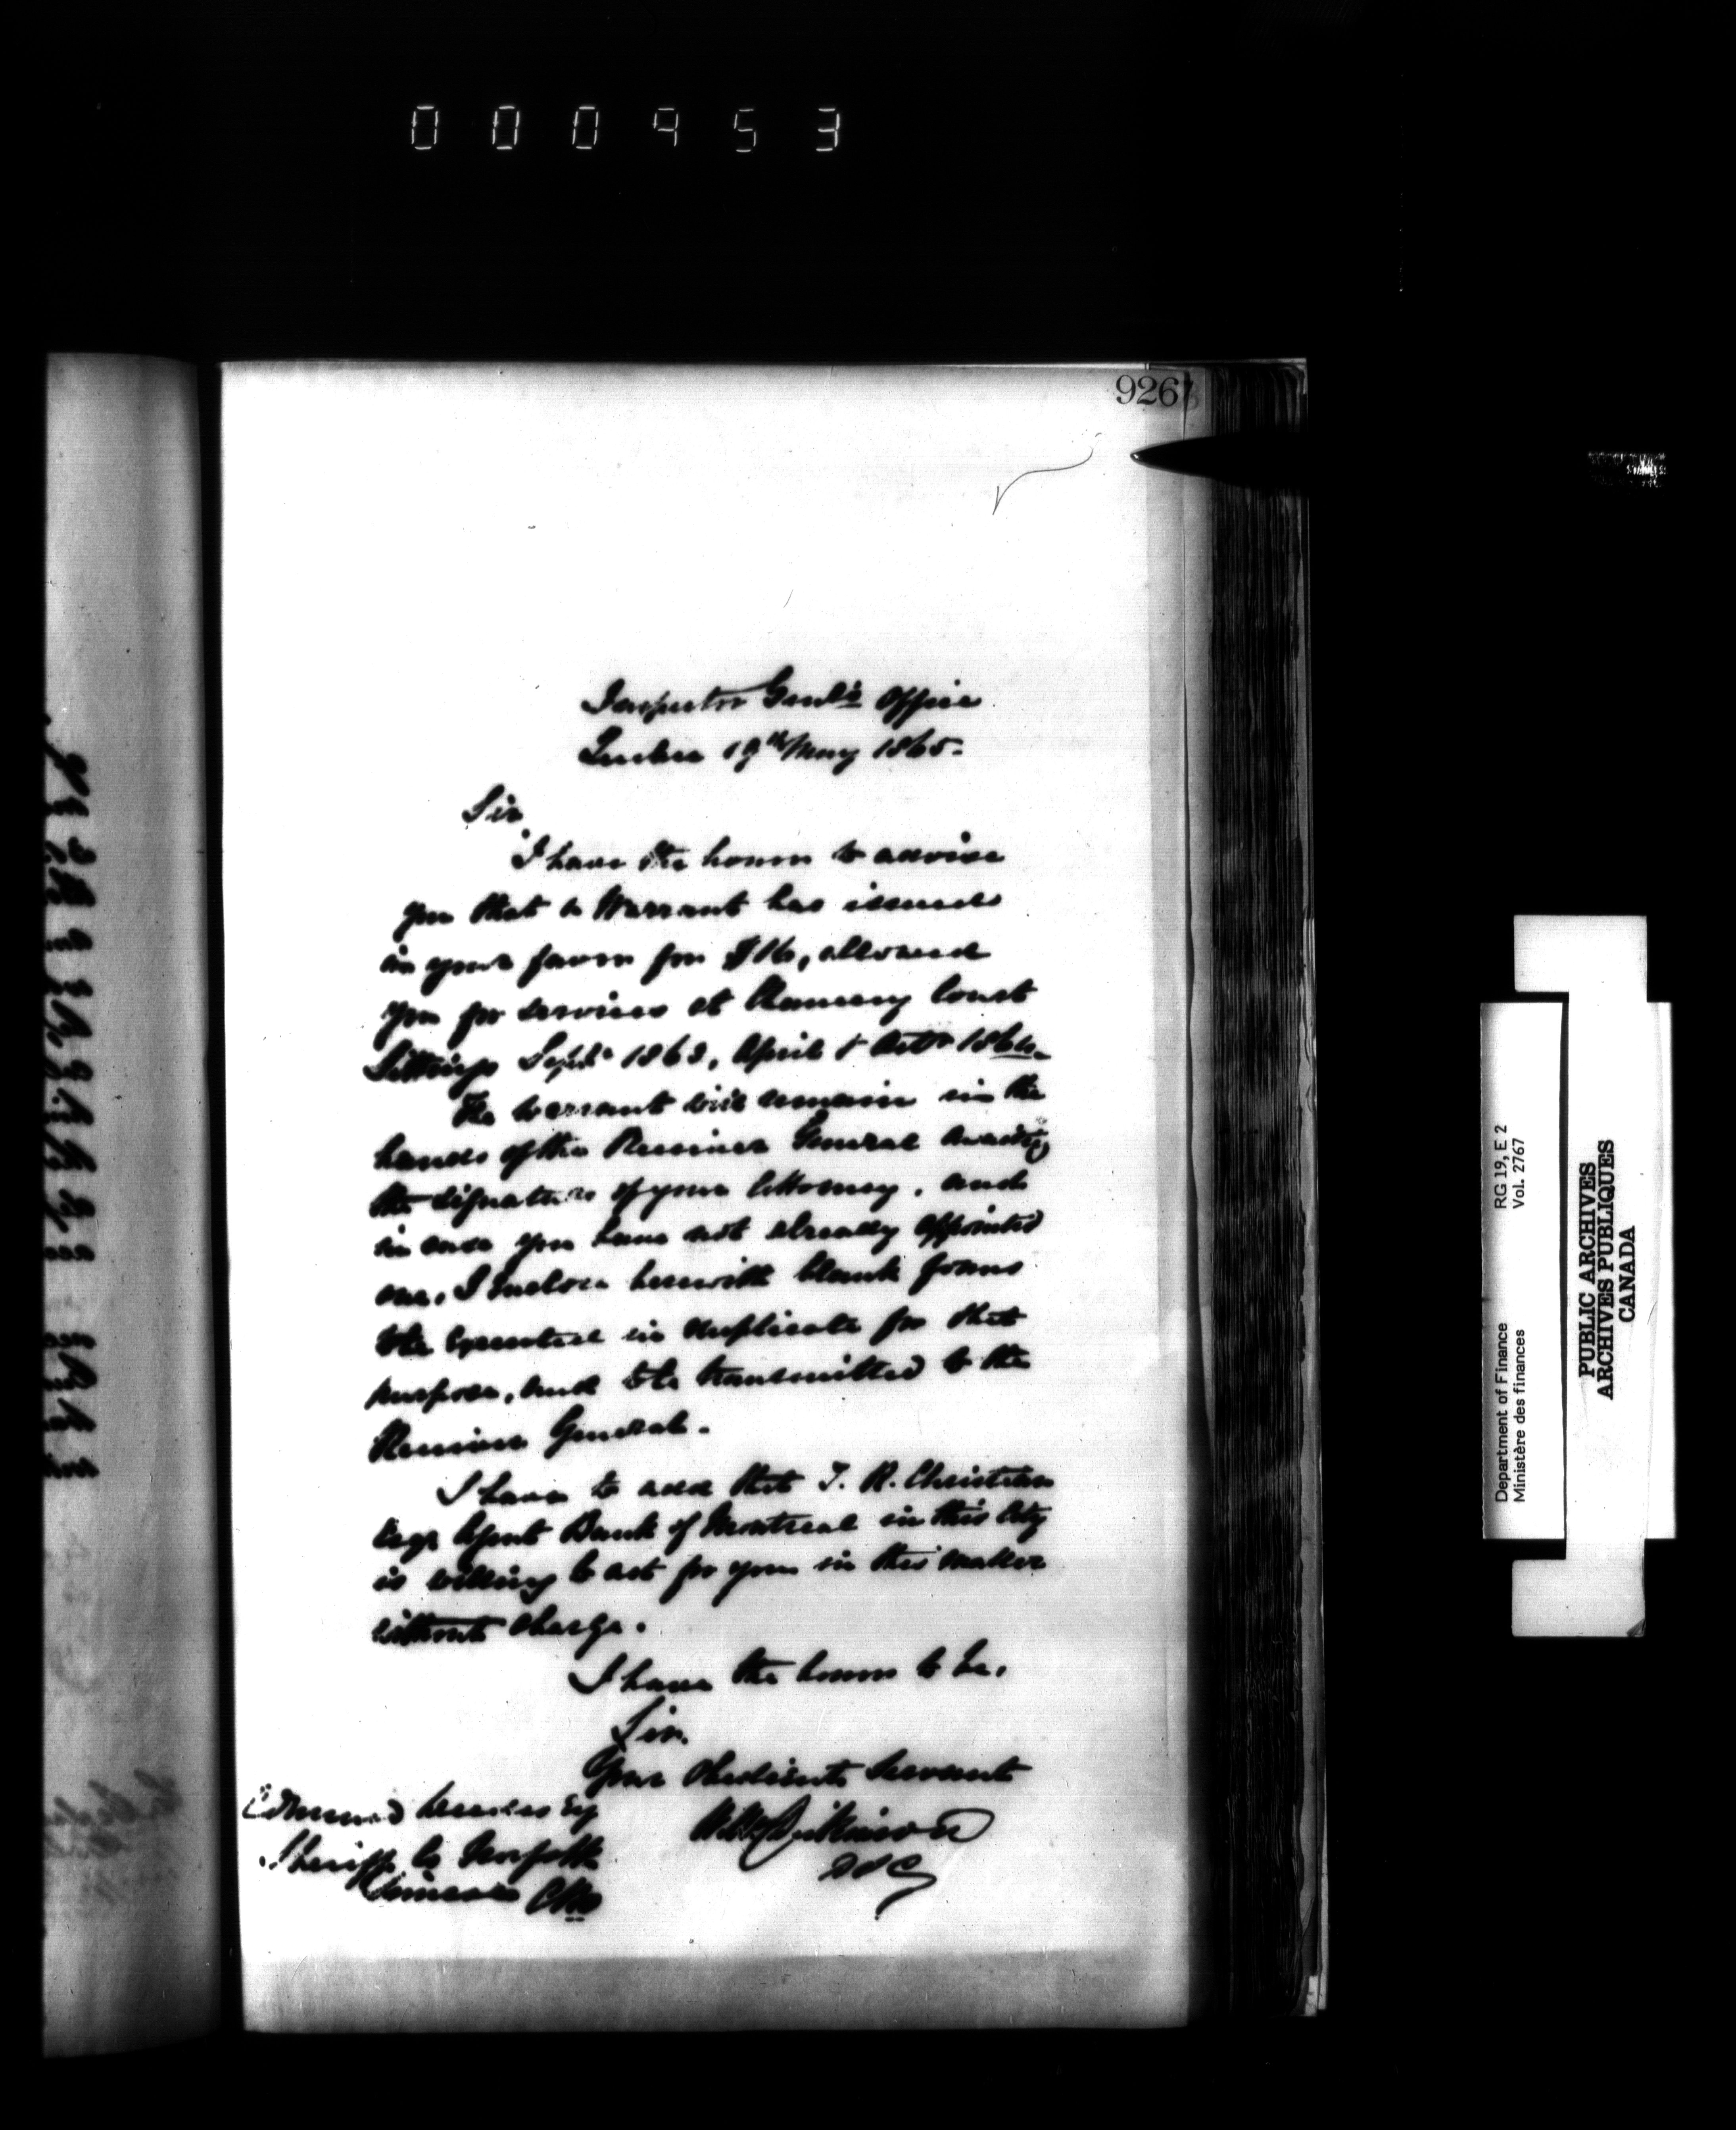 000953
926
Inspector Genl's Office
Quebec 19th May 1865.
Sir
I have the honor to advise
you that a Warrant has issued
in your favor for $16, allowed
you for services at Chancery Court
Sittings Septr 1863, April & Octr 1864.
The warrant will remain in the
hands of the Receiver General awaiting
the signature of your Attorney, and
in case you have not already appointed
one, I enclose herewith blank forms
to be executed in duplicate for that
purpose, and to be transmitted to the
Receiver General.
I have to add that T. R. Christian
Esqr Agent Bank of Montreal in this City
is willing to act for you in this matter
without charge.
I have the honor to be,
Sir.
Your Obedient Servant
Dickinson
Edmund Esq
Sheriff Co Norfolk
Simcoe CW
Department of Finance RG 19, E 2
Ministère des finances Vol. 2767
PUBLIC ARCHIVES
ARCHIVES PUBLIQUES
CANADA